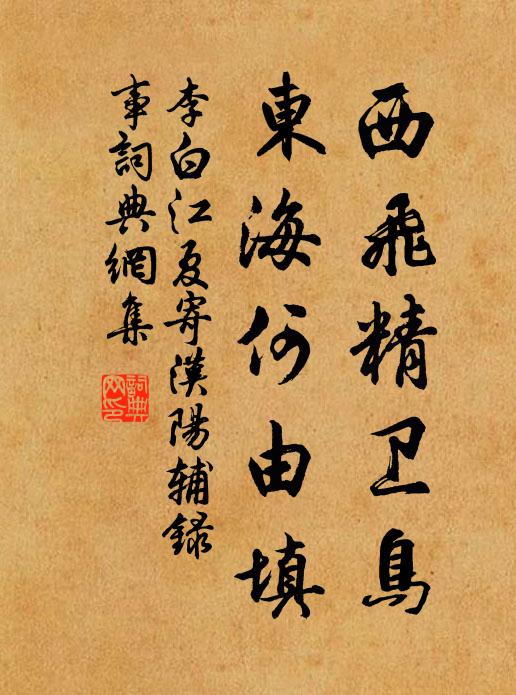 西飛精卫鳥
東海何由填
李白江夏寄漢陽辅録
事詞典網集
詞典網印